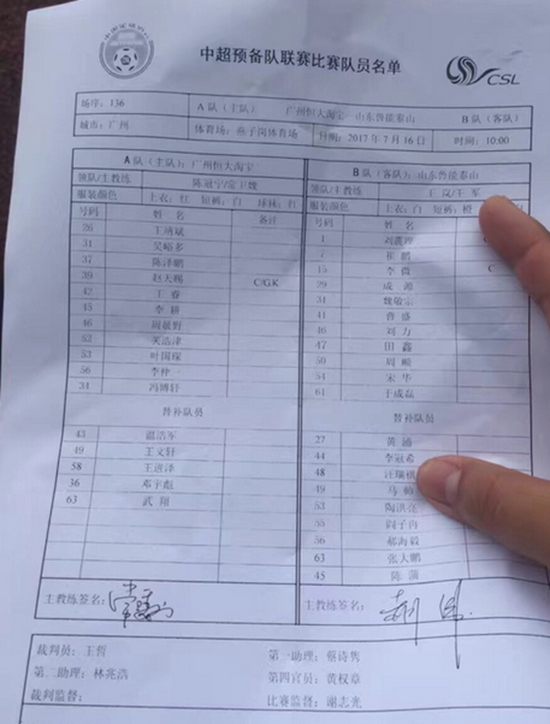 中超预备队联赛比赛队员名单
CSL
场序：136 A队（主队） 广州恒大淘宝—山东鲁能泰山 B队（客队）
城市：广州 体育场：燕子岗体育场 日期：2017年7月16日 时间：10:00
A队（主队）：广州恒大淘宝
领队/主教练
服装颜色 上衣：红 短裤：白 球袜：红
号码 姓 名 备注
26 王靖斌
31 吴峪多
37 陈泽鹏
39 赵天赐 C/GK
42 王睿
45 李耕
46
52 关浩津
53 叶国琛
56
34 冯博轩
替补队员
43 温浩军
49 王文轩
58 王进泽
36 邓宇彪
63 武翔
主教练签名：
B队（客队）：山东鲁能泰山
领队/主教练
服装颜色 上衣：白 短裤：橙
号码 姓 名
1
7 崔鹏
15 李微 C
29 成源
31 魏敬宗
41 曹盛
46 刘力
47 田鑫
50 周顺
54 宋华
61 于成磊
替补队员
27 黄浦
44 李冠希
48 汪瑞
49 马帅
53
55
56 郝海毅
63 张大鹏
45 陈蒲
主教练签名：
裁判员：王哲 第一助理：蔡诗隽
第二助理：林兆浩 第四官员：黄权章
裁判监督： 比赛监督：谢志光